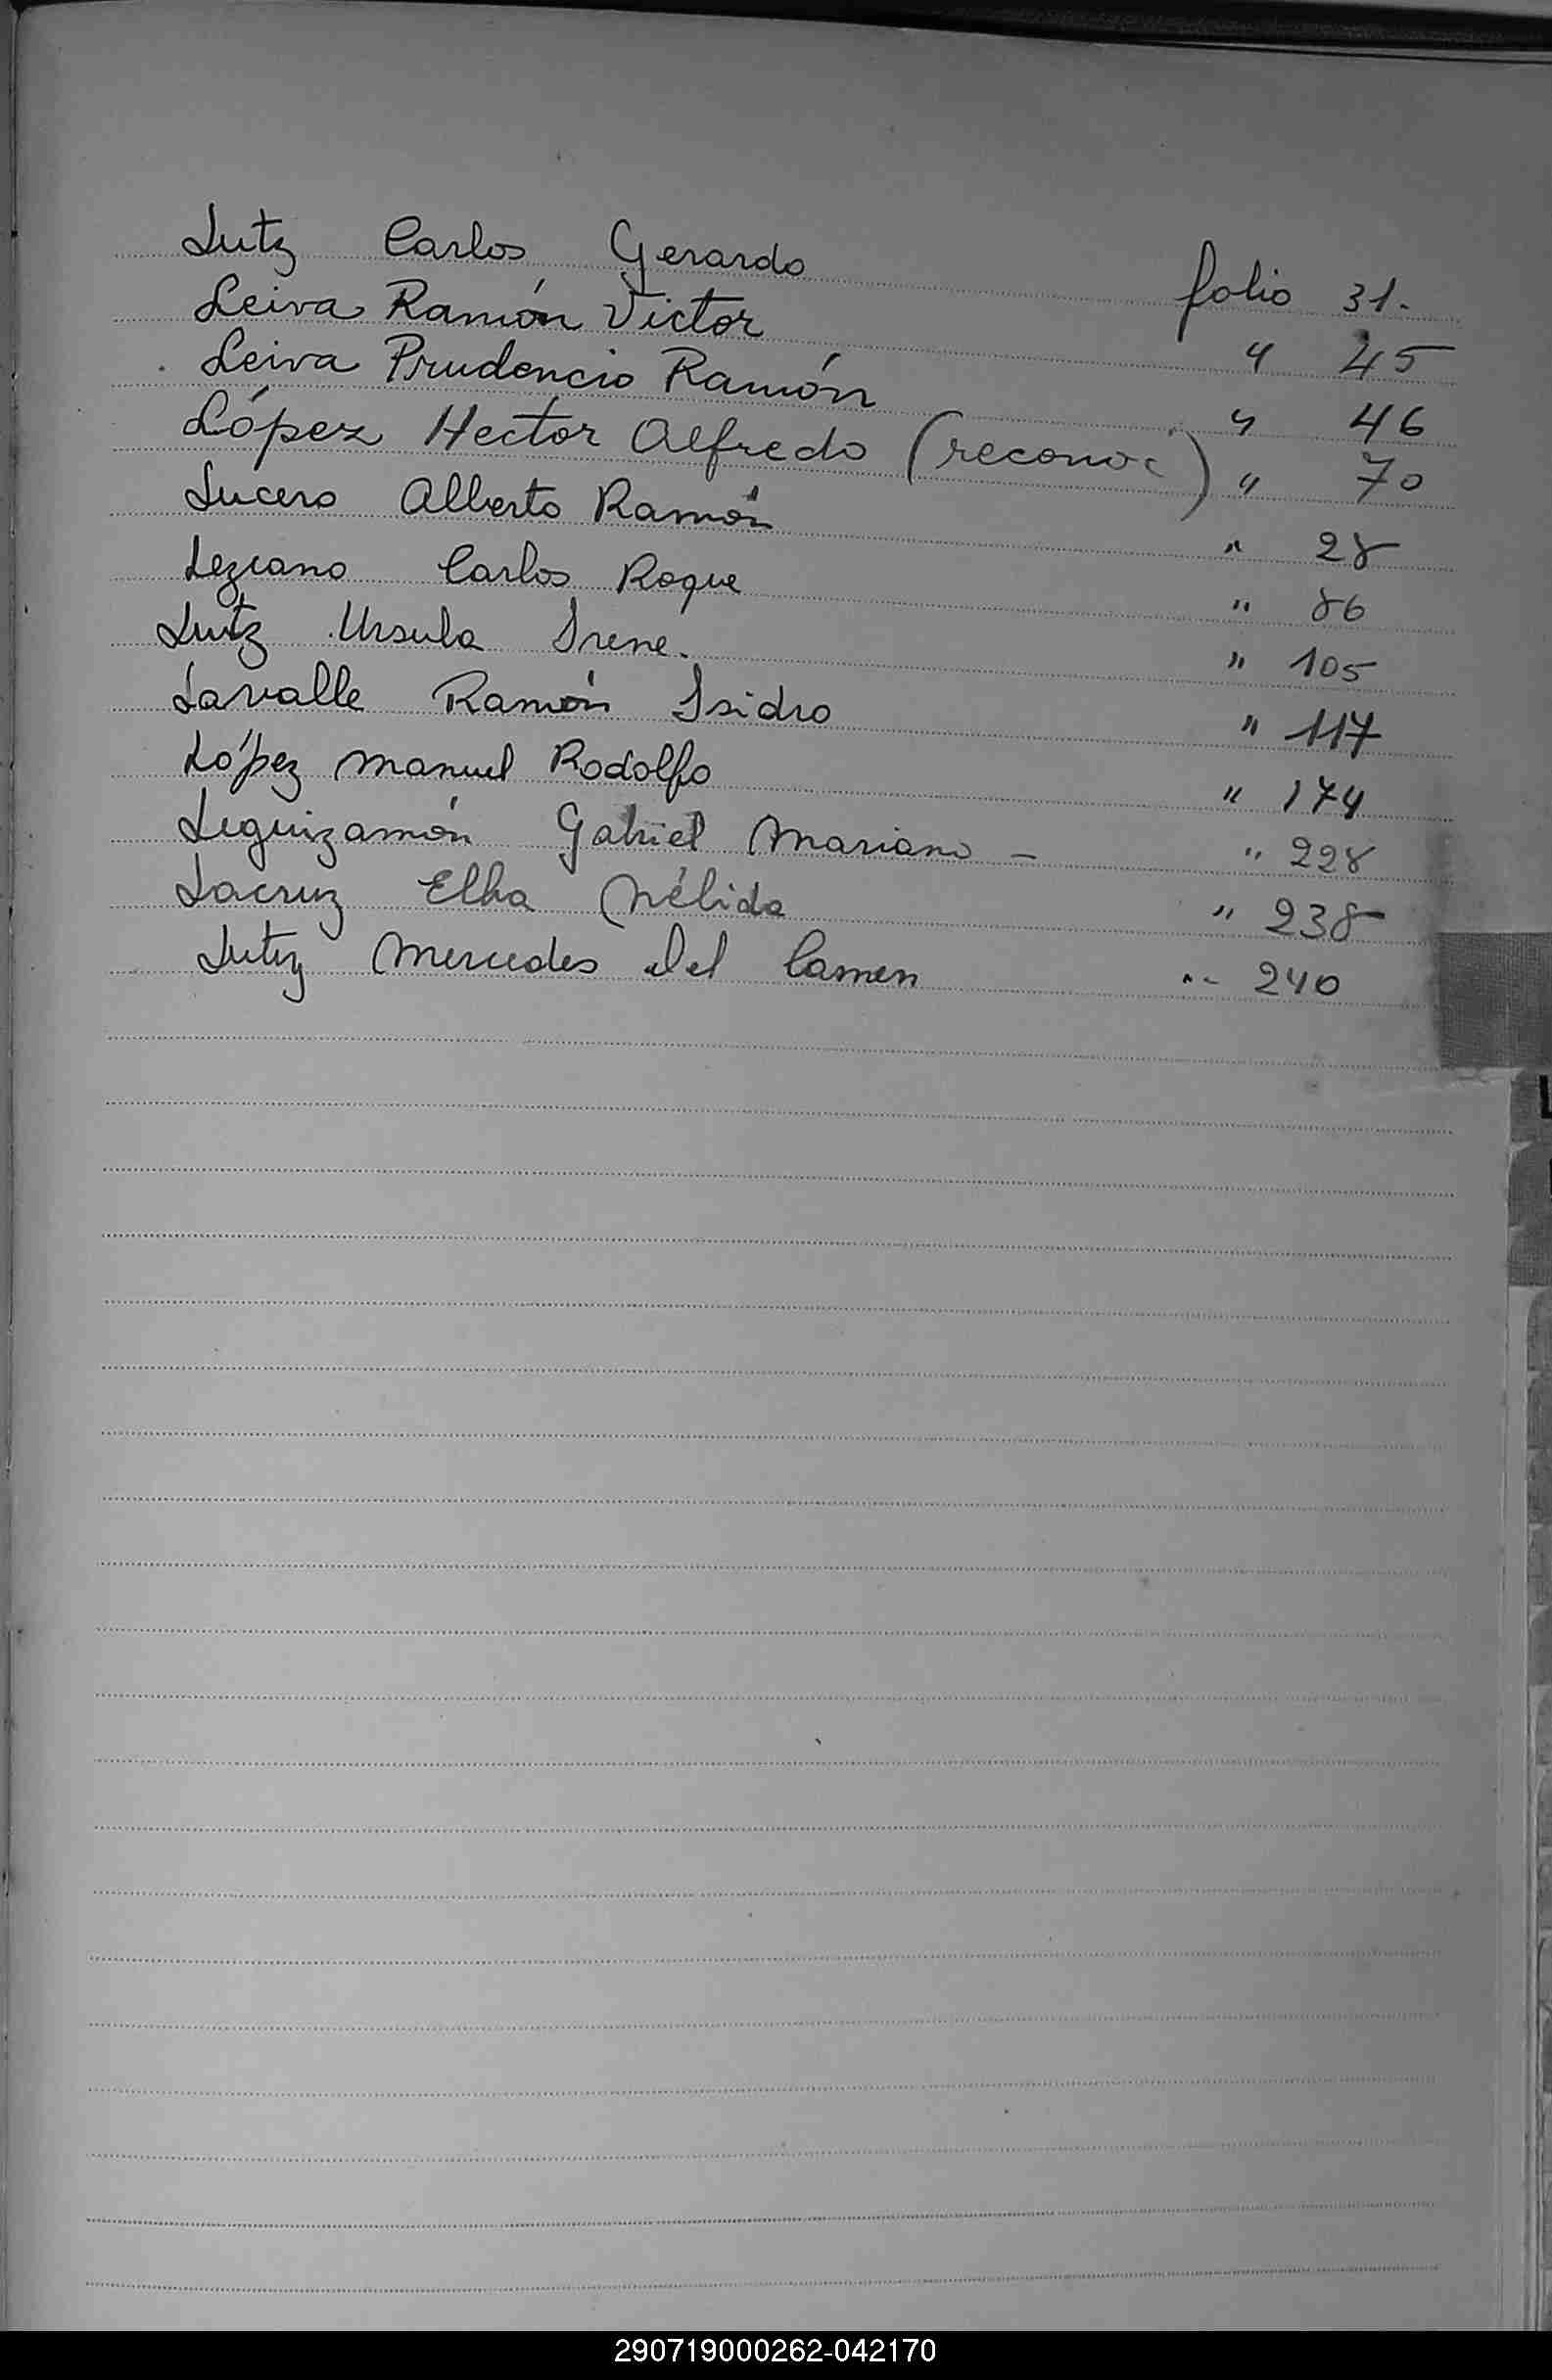 Lutz Carlos Gerardo folio 31.
Leiva Ramón Victor " 45
Leiva Prudencio Ramón " 46
López Hector Alfredo (reconoc) " 70
Lucero Alberto Ramón " 28
Lezcano Carlos Roque " 86
Lutz Ursula Irene. " 105
Lavalle Ramón Isidro " 117
López Manuel Rodolfo " 174
Leguizamón Gabriel Mariano — " 228
Lacruz Elba Nélida " 238
Lutz Mercedes Del Carmen " 240
L
290719000262-042170